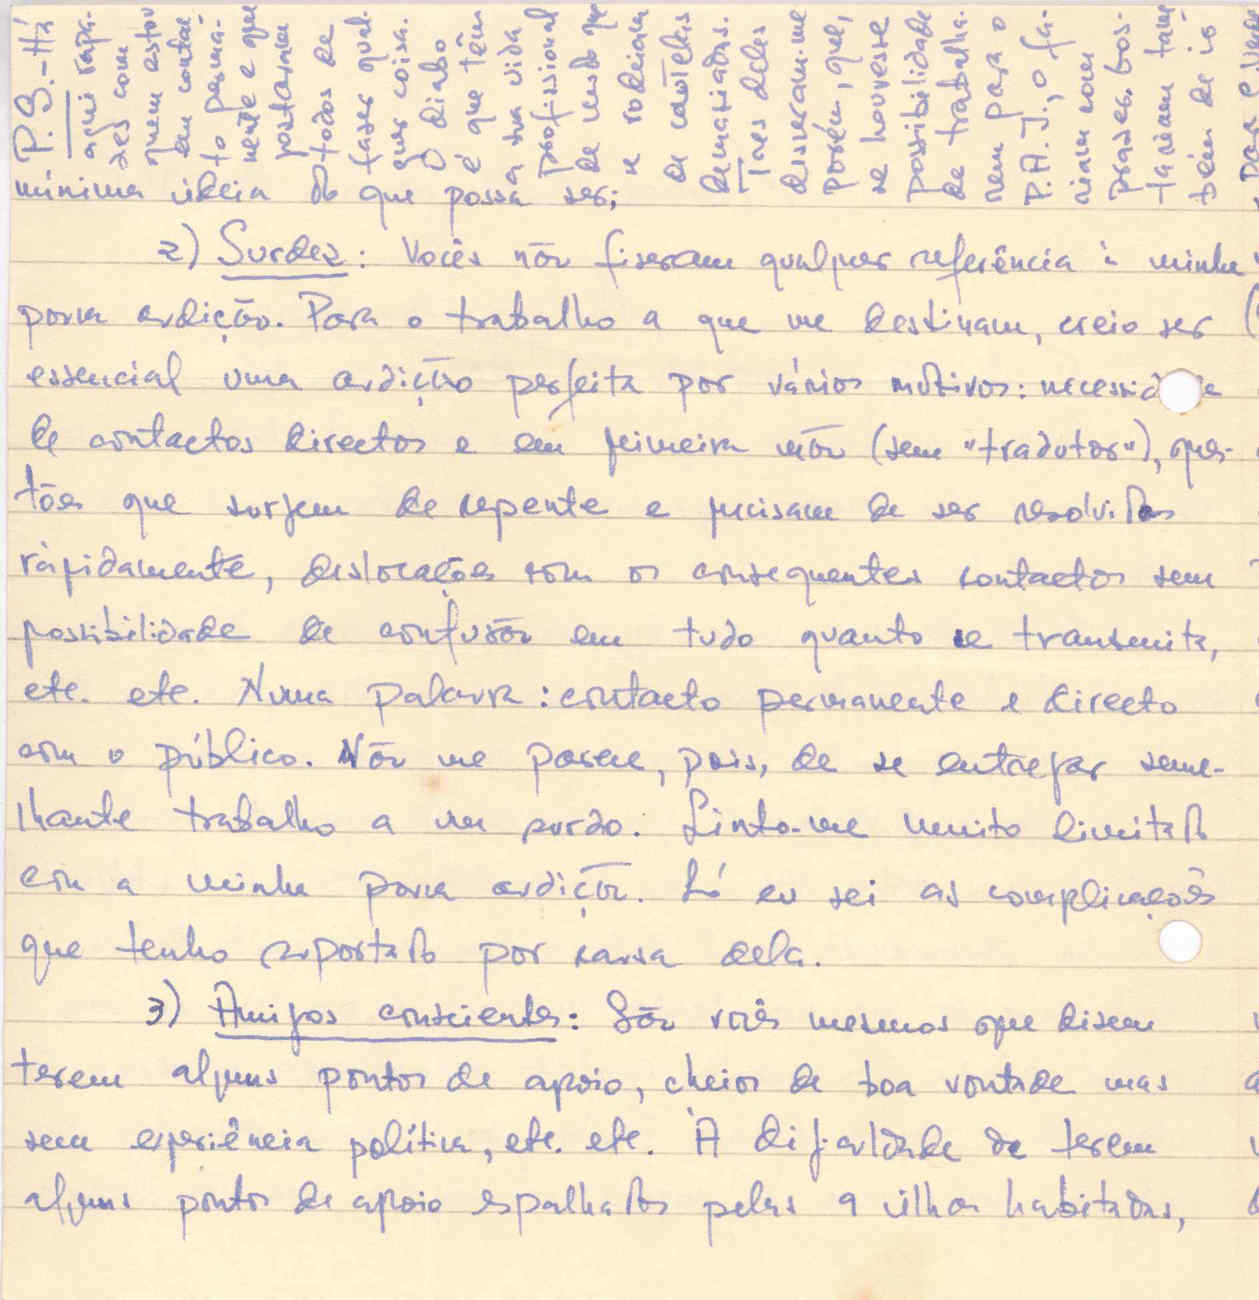 P.S.-Há
aqui rapa-
zes com
quem estou
em contac
to perma-
nente e que
gostariam
todos de
fazer qual-
quer coisa.
O diabo
é que têm
a sua vida
profissional
de modo que
se rodeiam
de cautelas
demasiadas.
Três deles
disseram-me
porém, que,
se houvesse
possibilidade
de trabalha-
rem para o
P.A.I., o fa-
riam com
prazer. Gos-
tariam tam
bém de ir
mínima ideia do que possa ser;
2) Surdez: Vocês não fizeram qualquer referência à minha
pouca audição. Para o trabalho a que me destinam, creio ser
essencial uma audição perfeita por vários motivos:
de contactos directos e em primeira mão (sem "tradutor"), ques-
tões que surjem de repente e precisam de ser resolvidas
ràpidamente, deslocações com os consequentes contactos sem
possibilidade de confusão em tudo quanto se transmita,
etc. etc. Numa palavra: contacto permanente e directo
com o público. Não me parece, pois, de se entregar seme-
lhante trabalho a um surdo. Sinto-me muito limitado
com a minha pouca audição. Só eu sei as complicações
que tenho suportado por causa dela.
3) Amigos conscientes: São vocês mesmos que dizem
terem alguns pontos de apoio, cheios de boa vontade mas
sem experiência política, etc. etc. À dificuldade de terem
alguns pontos de apoio espalhados pelas 9 ilhas habitadas,